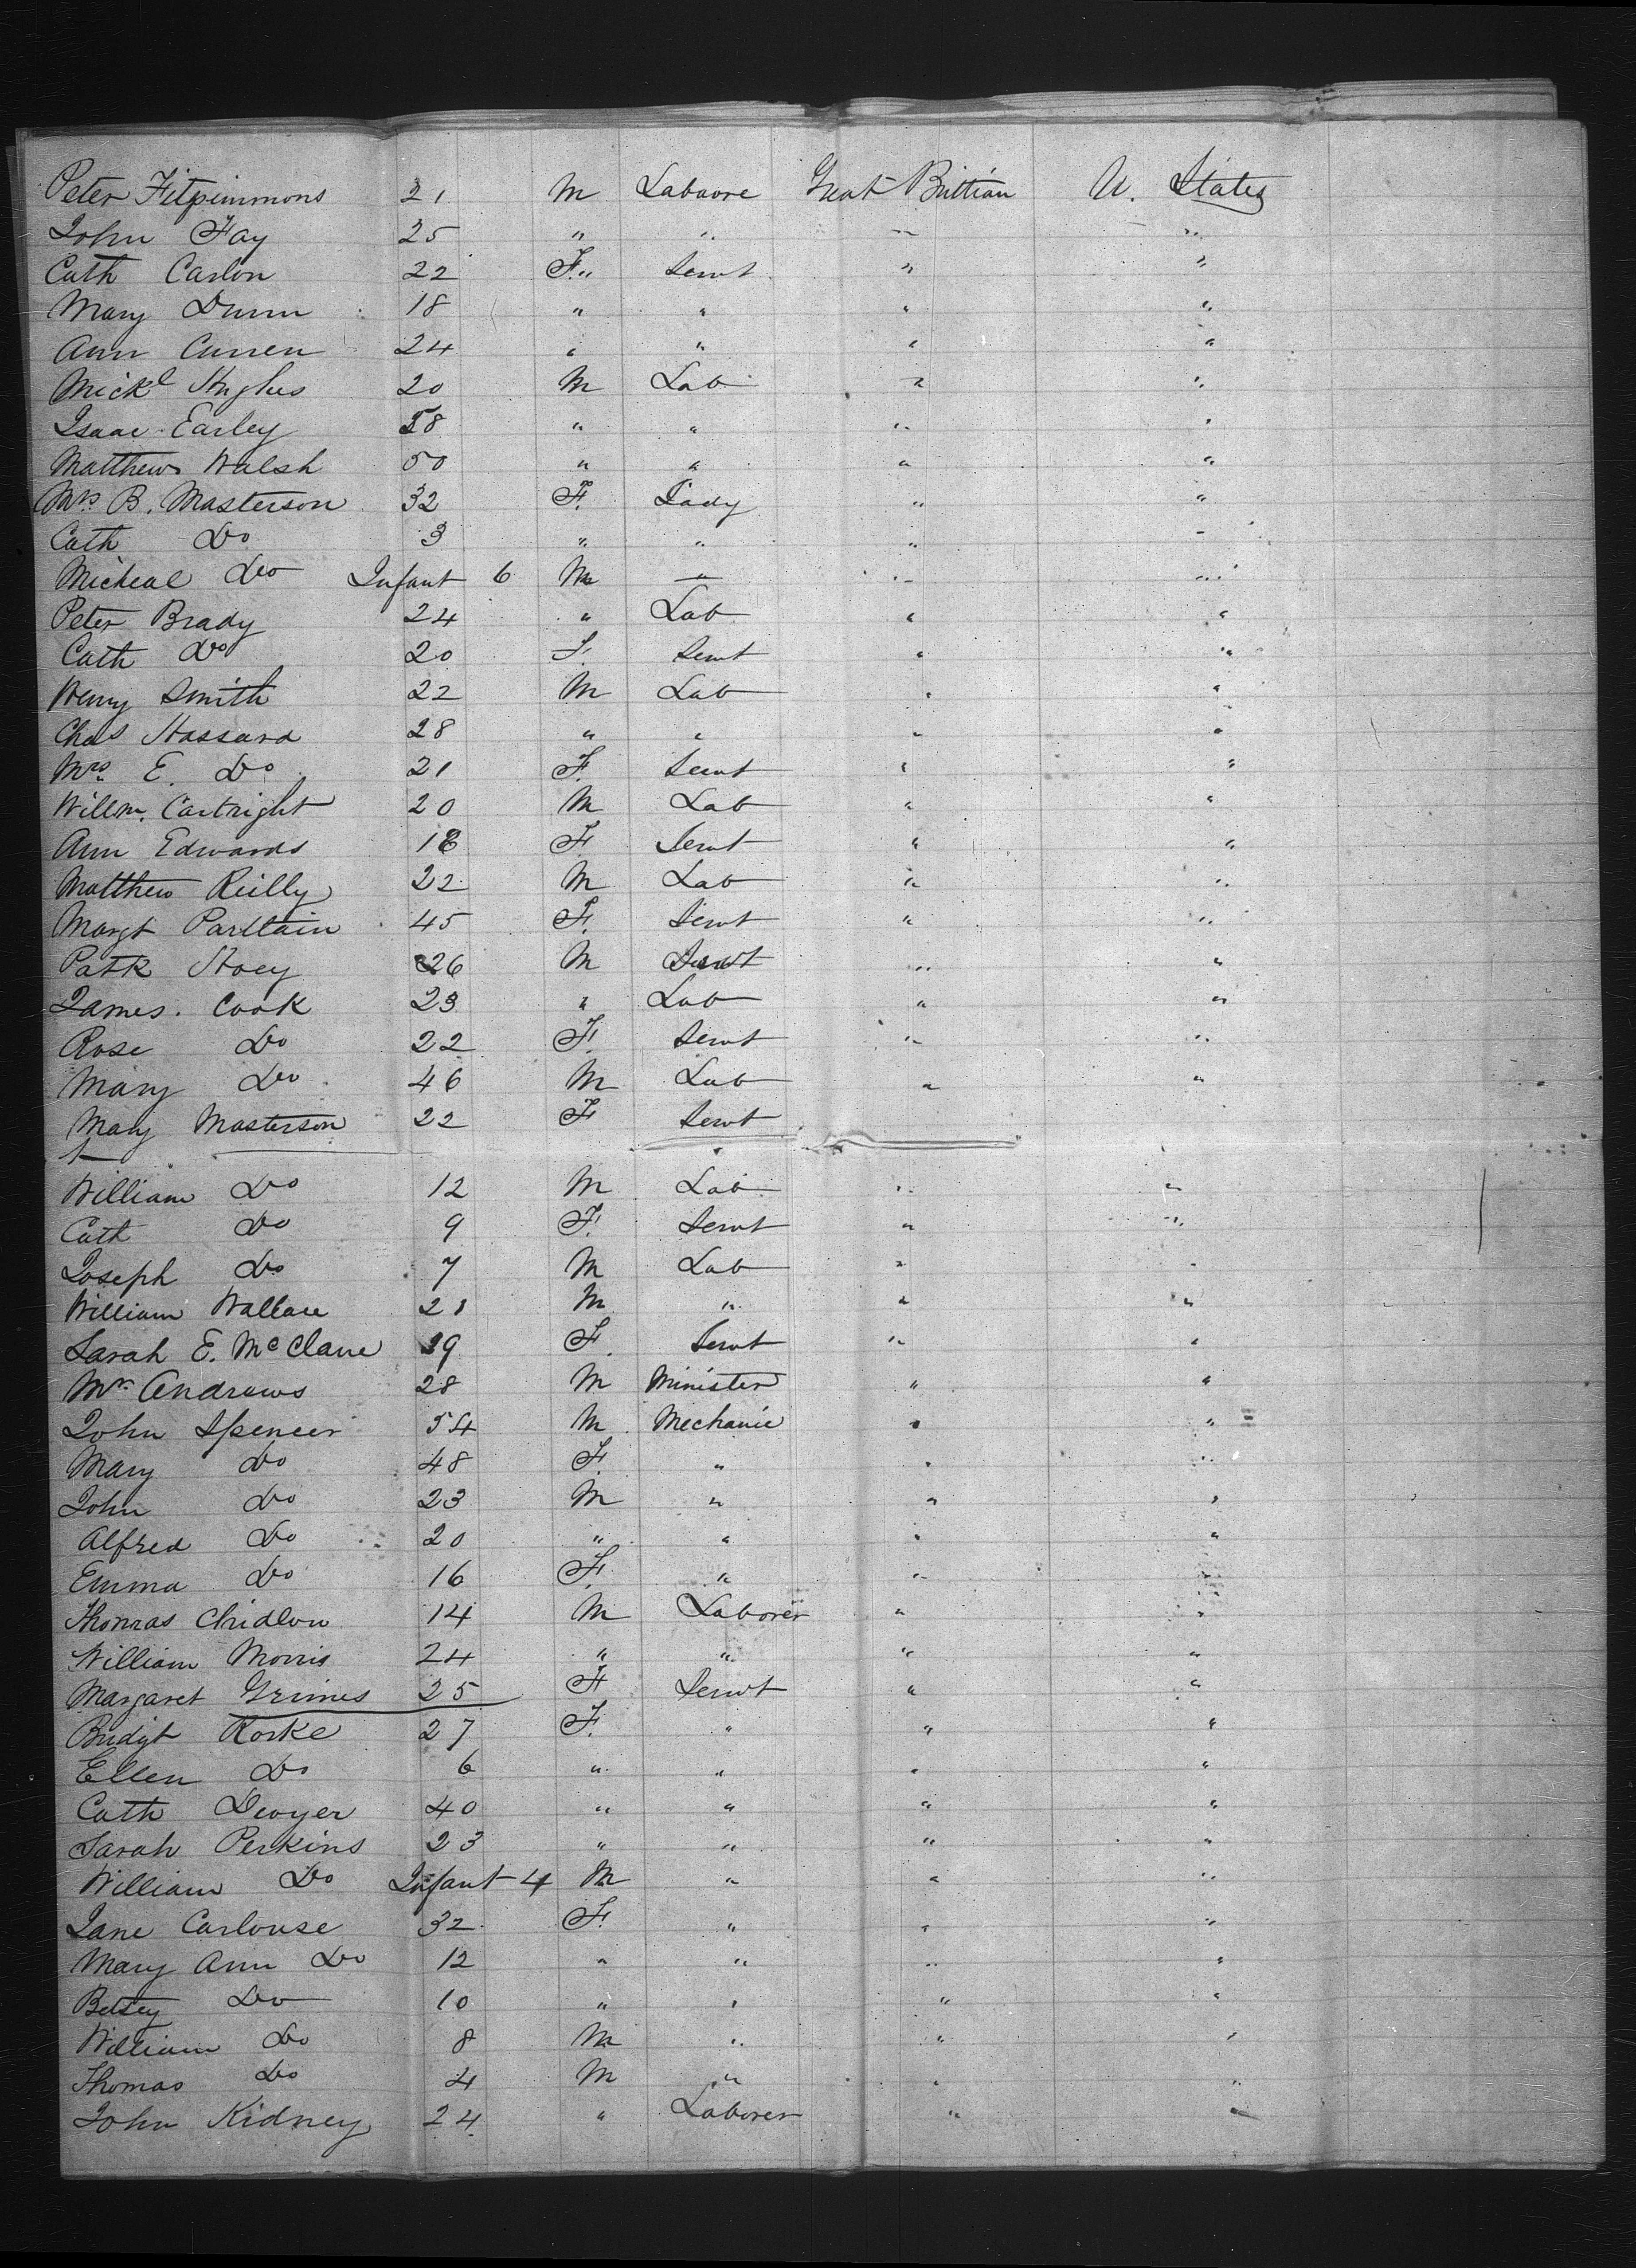 Peter Fitpimmons 21 M Labaore Great Brittian U. States
John Fay 25 " " " "
Cath Carlon 22 F " Servt " "
Mary Dunn 18 " " " "
Ann Curren 24 " " " "
Mickl Hughes 20 M Lab " "
Isaac Earley 58 " " " "
Matthew Walsh 50 " " " "
Mrs B. Masterson 32 F. Lady " "
Cath Do 3 " " " "
Micheal Do Infant 6 M " " "
Peter Brady 24 " Lab " "
Cath Do 20 F. Servt " "
Henry Smith 22 M Lab " "
Chas Hassard 28 " " " "
Mrs E. Do 21 F. Servt " "
Willm. Cartright 20 M Lab " "
Ann Edwards 18 F Servt " "
Matthew Reilly 22 M Lab " "
Margt Parltain 45 F. Servt " "
Patk Hoey 26 M Servt " "
James. Cook 23 " Lab " "
Rose Do 22 F. Servt " "
Mary Do 46 M Lab " "
Mary Masterson 22 F Servt
William Do 12 M Lab " "
Cath Do 9 F. Servt " "
Joseph Do 7 M Lab " "
William Wallace 21 M " " "
Sarah E. McClane 39 F. Servt " "
Mr. Andrews 28 M Minister " "
John Spencer 54 M Mechanic " "
Mary Do 48 F. " " "
John Do 23 M " " "
Alfred Do 20 " " " "
Emma Do 16 F. " " "
Thomas Chidlow 14 M Laborer " "
William Morris 24 " " " "
Margaret Grimes 25 F Servt " "
Bridgt Rorke 27 F. " " "
Ellen Do 6 " " " "
Cath Dwyer 40 " " " "
Sarah Perkins 23 " " " "
William Do Infant 4 M " " "
Jane Carlouse 32 F. " " "
Mary Ann Do 12 " " " "
Betsey Do 10 " " " "
William Do 8 M " " "
Thomas Do 4 M " " "
John Kidney 24 " Laborer " "